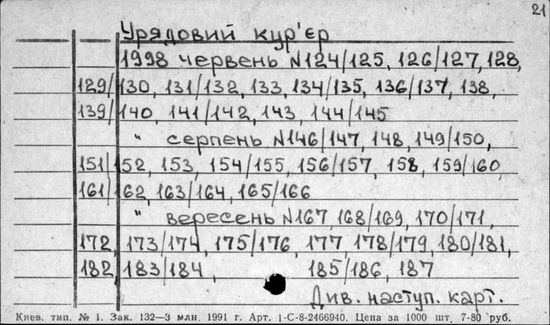 21
Урядовий кур'єр
1998 червень N124/125, 126/127, 128,
129/130, 131/132, 133, 134/135, 136/137, 138,
139/140, 141/142, 143, 144/145
" серпень N146/147, 148, 149/150,
151/152, 153, 154/155, 156/157, 158, 159/160,
161/162, 163/164, 165/166
" вересень N167, 168/169, 170/171,
172, 173/174, 175/176, 177, 178/179, 180/181,
182, 183/184, 185/186, 187
Див. наступ. карт.
Киев. тип. № 1. Зак. 132—3 млн. 1991 г. Арт. 1-С-8-2466940. Цена за 1000 шт. 7-80 руб.